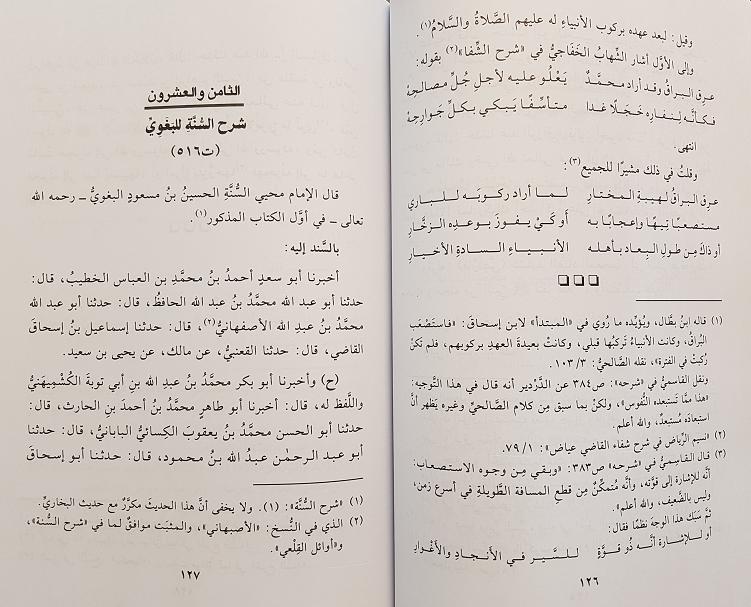 وقيل: لبعد عهده بركوب الأنبياء له عليهم الصَّلاةُ والسَّلامُ(١).
وإلى الأوَّل أشار الشِّهابُ الخَفَاجيُّ في «شرح الشِّفا»(٢) بقوله:
عرِق البراقُ وقد أراد محمَّدٌ يَعْلُو عليه لأجلِ جُلِّ مصالحِهْ
فكأنَّه لِنفاره خَجَلًا غدا متأسِّفًا يَبكي بكلِّ جوارحِهْ
انتهى.
وقلتُ في ذلك مشيرًا للجميع(٣):
عرِق البراقُ لهيبةِ المختارِ لما أراد ركوبَه للباري
مستصعبًا تِيهًا وإعجابًا به أو كَيْ يفوزَ بوعدِه الزخَّارِ
أو ذاك مِن طولِ البِعادِ بأهله الأنبياءِ السادةِ الأخيارِ
(١) قاله ابنُ بطَّال، ويُؤيِّده ما رُوي في «المبتدأ» لابن إسحاق: «فاستَصْعَب
البُراقُ، وكانت الأنبياءُ تَركبُها قبلي، وكانتْ بعيدةَ العهدِ بركوبهم، فلم تكنْ
رُكبتْ في الفترة»، نقله الصَّالحيُّ: ٣/ ١٠٣.
ونقل القاسميُّ في «شرحه»: ص٣٨٤ عن الدَّردير أنه قال في هذا التَّوجيه:
«هذا ممَّا تَستبعده النُّفوس»، ولكنْ بما سبق مِن كلام الصَّالحيِّ وغيره يَظهر أنَّ
استبعادَه مُستبعدٌ، والله أعلم.
(٢) «نسيم الرِّياض في شرح شفاء القاضي عياض»: ١/ ٧٩.
(٣) قال القاسميُّ في «شرحه» ص٣٨٣: «وبقي مِن وجوه الاستصعاب:
أنَّه للإشارة إلى قوَّته، وأنَّه مُتمكِّنٌ مِن قطع المسافة الطَّويلةِ في أسرع زمن،
وليس بالضَّعيف، والله أعلم».
ثمَّ سَبَك هذا الوجهَ نظمًا فقال:
أو للإشارة أنَّه ذُو قوَّةٍ للسَّيرِ في الأنجادِ والأَغْوارِ
١٢٦
الثامن والعشرون
شرح السُّنَّةِ للبَغَويِّ
(ت٥١٦)
قال الإمام محيي السُّنَّةِ الحسينُ بنُ مسعودٍ البغويُّ ــ رحمه الله
تعالى ــ في أوَّل الكتاب المذكور(١).
بالسَّند إليه:
أخبرنا أبو سعدٍ أحمدُ بنُ محمَّدِ بن العباس الخطيبُ، قال:
حدثنا أبو عبد الله محمَّدُ بنُ عبد الله الحافظُ، قال: حدثنا أبو عبد الله
محمَّدُ بنُ عبدِ الله الأصفهانيُّ(٢)، قال: حدثنا إسماعيل بنُ إسحاقَ
القاضي، قال: حدثنا القعنبيُّ، عن مالك، عن يحيى بن سعيد.
(ح) وأخبرنا أبو بكر محمَّدُ بنُ عبدِ الله بنِ أبي توبةَ الكُشْمِيهَنيُّ
واللَّفظ له، قال: أخبرنا أبو طاهرٍ محمَّدُ بنُ أحمدَ بنِ الحارث، قال:
حدثنا أبو الحسن محمَّدُ بنُ يعقوبَ الكِسائيُّ البابانيُّ، قال: حدثنا
أبو عبد الرحمٰن عبدُ الله بنُ محمود، قال: حدثنا أبو إسحاقَ
(١) «شرح السُّنَّة»: (١). ولا يخفى أنَّ هذا الحديثَ مكرَّرٌ مع حديث البخاريِّ.
(٢) الذي في النُّسخ: «الأصبهاني»، والمثبَت موافقٌ لما في «شرح السُّنة»،
و«أوائل القِلْعي».
١٢٧